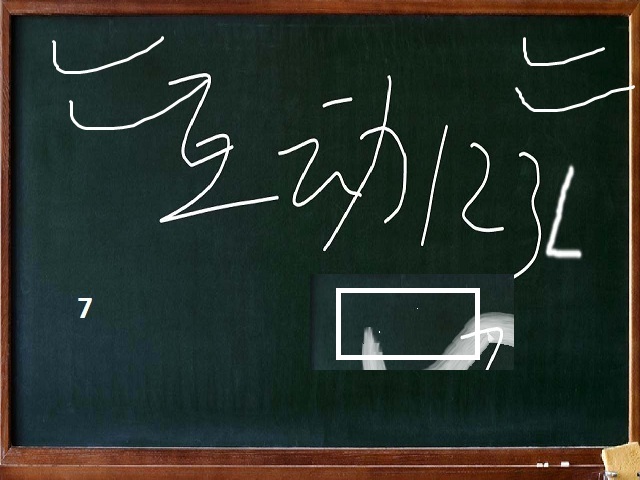 互动123L
7
7